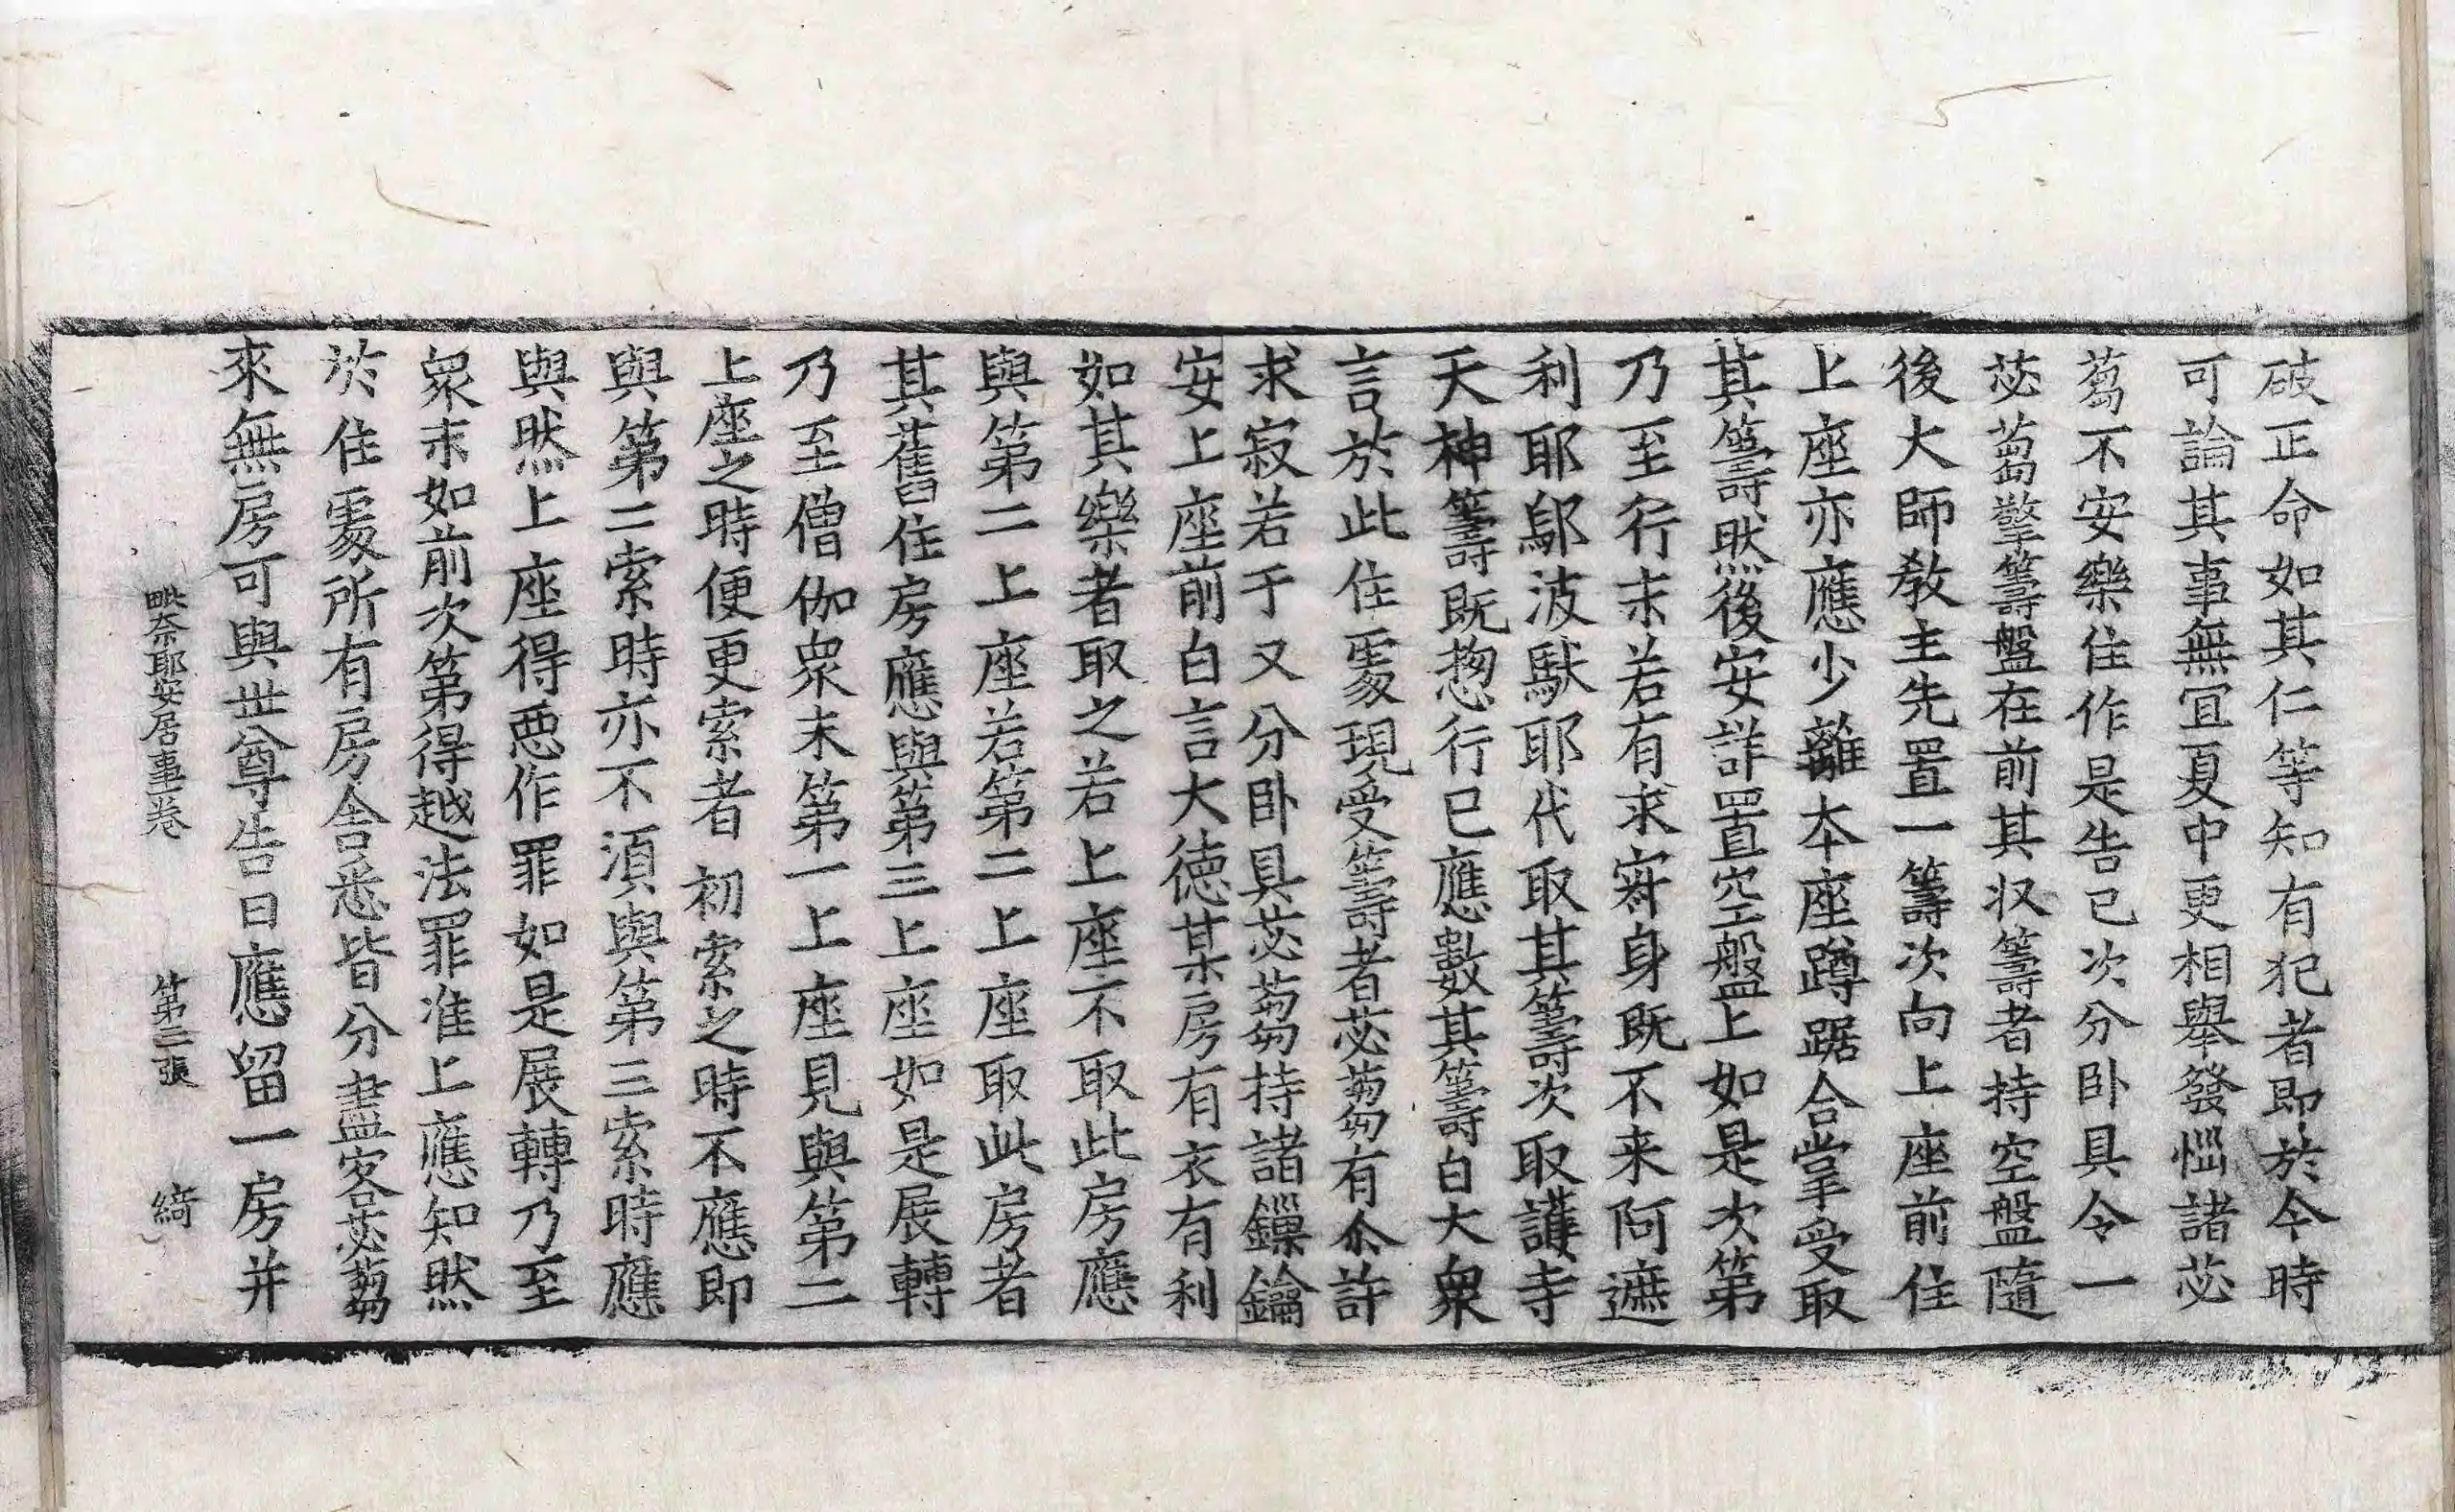 破正命如其仁等知有犯者即於今時
可論其事無冝夏中更相舉發惱諸苾
蒭不安樂住作是告已次分卧具令一
苾蒭擎籌盤在前其収籌者持空盤隨
後大師敎主先置一籌次向上座前住
上座亦應少離本座蹲踞合掌受取
其籌然後安詳置空盤上如是次第
乃至行末若有求寂身旣不来阿遮
利耶鄔波馱耶代取其籌次取護寺
天神籌既揔行已應數其籌白大衆
言於此住處現受籌者苾蒭有尒許
求寂若干又分卧具苾蒭持諸鏁鑰
安上座前白言大德某房有衣有利
如其樂者取之若上座不取此房應
與第二上座若第二上座取此房者
其舊住房應與第三上座如是展轉
乃至僧伽衆末第一上座見與第二
上座之時便更索者初索之時不應即
與第二索時亦不湏與第三索時應
與然上座得悪作罪如是展轉乃至
衆末如前次第得越法罪准上應知然
於住處所有房舎悉皆分盡客苾蒭
來無房可與世尊告曰應留一房并
毗奈耶安居事卷　第三張　綺